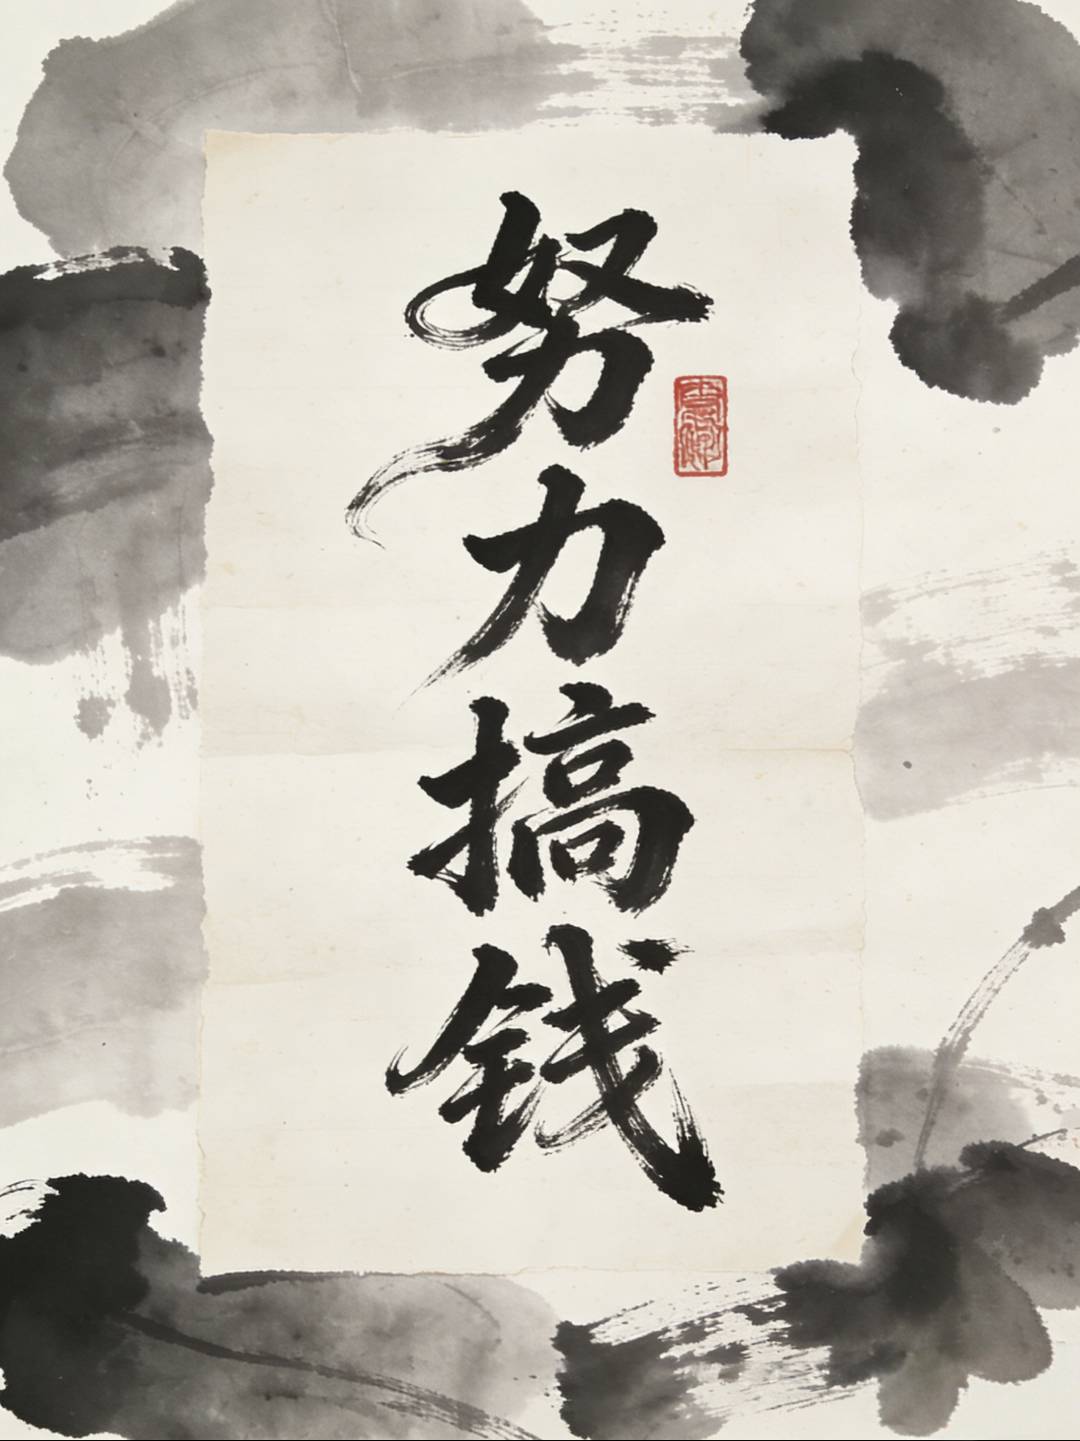 努力搞钱